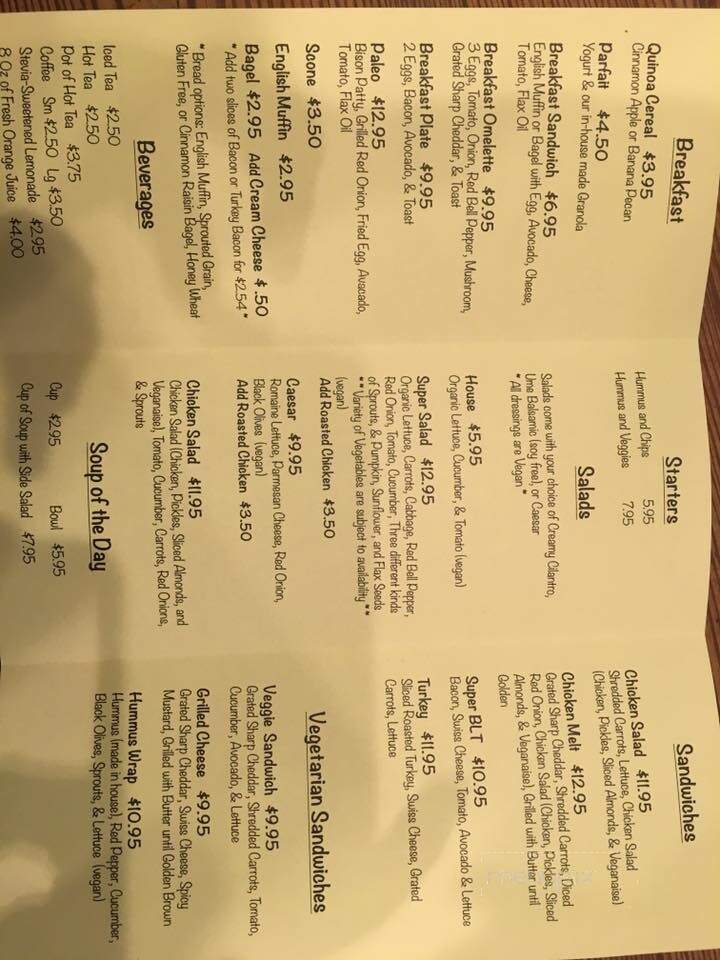 Breakfast
Quinoa Cereal $3.95
Cinnamon Apple or Banana Pecan
Parfait $4.50
Yogurt & our in-house made Granola
Breakfast Sandwich $6.95
English Muffin or Bagel with Egg, Avocado, Cheese,
Tomato, Flax Oil
Breakfast Omelette $9.95
3 Eggs, Tomato, Onion, Red Bell Pepper, Mushroom,
Grated Sharp Cheddar, & Toast
Breakfast Plate $9.95
2 Eggs, Bacon, Avocado, & Toast
Paleo $12.95
Bison Patty, Grilled Red Onion, Fried Egg, Avacado,
Tomato, Flax Oil
Scone $3.50
English Muffin $2.95
Bagel $2.95 Add Cream Cheese $ .50
* Add two slices of Bacon or Turkey Bacon for $2.54 *
* Bread options: English Muffin, Sprouted Grain,
Gluten Free, or Cinnamon Raisin Bagel, Honey Wheat
Beverages
Iced Tea $2.50
Hot Tea $2.50
Pot of Hot Tea $3.75
Coffee Sm $2.50 Lg $3.50
Stevia-Sweetened Lemonade $2.95
8 Oz of Fresh Orange Juice $4.00
Starters
Hummus and Chips 5.95
Hummus and Veggies 7.95
Salads
Salads come with your choice of Creamy Cilantro,
Ume Balsamic (soy free), or Caesar
* All dressings are Vegan *
House $5.95
Organic Lettuce, Cucumber, & Tomato (vegan)
Super Salad $12.95
Organic Lettuce, Carrots, Cabbage, Red Bell Pepper,
Red Onion, Tomato, Cucumber, Three different kinds
of Sprouts, & Pumpkin, Sunflower, and Flax Seeds
** Variety of Vegetables are subject to availability **
(vegan)
Add Roasted Chicken $3.50
Caesar $9.95
Romaine Lettuce, Parmesan Cheese, Red Onion,
Black Olives (vegan)
Add Roasted Chicken $3.50
Chicken Salad $11.95
Chicken Salad (Chicken, Pickles, Sliced Almonds, and
Veganaise), Tomato, Cucumber, Carrots, Red Onions,
& Sprouts
Soup of the Day
Cup $2.95 Bowl $5.95
Cup of Soup with Side Salad $7.95
Sandwiches
Chicken Salad $11.95
Shredded Carrots, Lettuce, Chicken Salad
(Chicken, Pickles, Sliced Almonds, & Veganaise)
Chicken Melt $12.95
Grated Sharp Cheddar, Shredded Carrots, Diced
Red Onion, Chicken Salad (Chicken, Pickles, Sliced
Almonds, & Veganaise), Grilled with Butter until
Golden
Super BLT $10.95
Bacon, Swiss Cheese, Tomato, Avocado & Lettuce
Turkey $11.95
Sliced Roasted Turkey, Swiss Cheese, Grated
Carrots, Lettuce
Vegetarian Sandwiches
Veggie Sandwich $9.95
Grated Sharp Cheddar, Shredded Carrots, Tomato,
Cucumber, Avocado, & Lettuce
Grilled Cheese $9.95
Grated Sharp Cheddar, Swiss Cheese, Spicy
Mustard, Grilled with Butter until Golden Brown
Hummus Wrap $10.95
Hummus (made in house), Red Pepper, Cucumber,
Black Olives, Sprouts, & Lettuce (vegan)